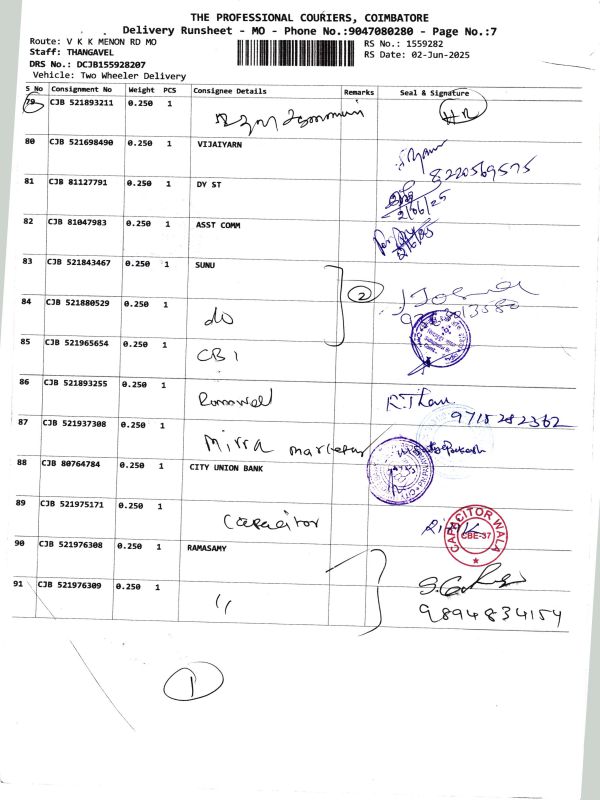 THE PROFESSIONAL COURIERS, COIMBATORE
Delivery Runsheet - MO - Phone No.:9047080280 - Page No.:7
Route: V K K MENON RD MO
RS No.: 1559282
Staff: THANGAVEL
RS Date: 02-Jun-2025
DRS No.: DCJB155928207
Vehicle: Two Wheeler Delivery
S No Consignment No Weight PCS Consignee Details Remarks Seal & Signature
79 CJB 521893211 0.250 1
80 CJB 521698490 0.250 1 VIJAIYARN
8220569575
81 CJB 81127791 0.250 1 DY ST
2/06/25
82 CJB 81047983 0.250 1 ASST COMM
83 CJB 521843467 0.250 1 SUNU
2
84 CJB 521880529 0.250 1 do
85 CJB 521965654 0.250 1 CB1
86 CJB 521893255 0.250 1
9715282362
87 CJB 521937308 0.250 1 Mirra
88 CJB 80764784 0.250 1 CITY UNION BANK
89 CJB 521975171 0.250 1 Capacitor
CAPACITOR WALA
CBE-37
90 CJB 521976308 0.250 1 RAMASAMY
91 CJB 521976309 0.250 1 "
9894834154
1